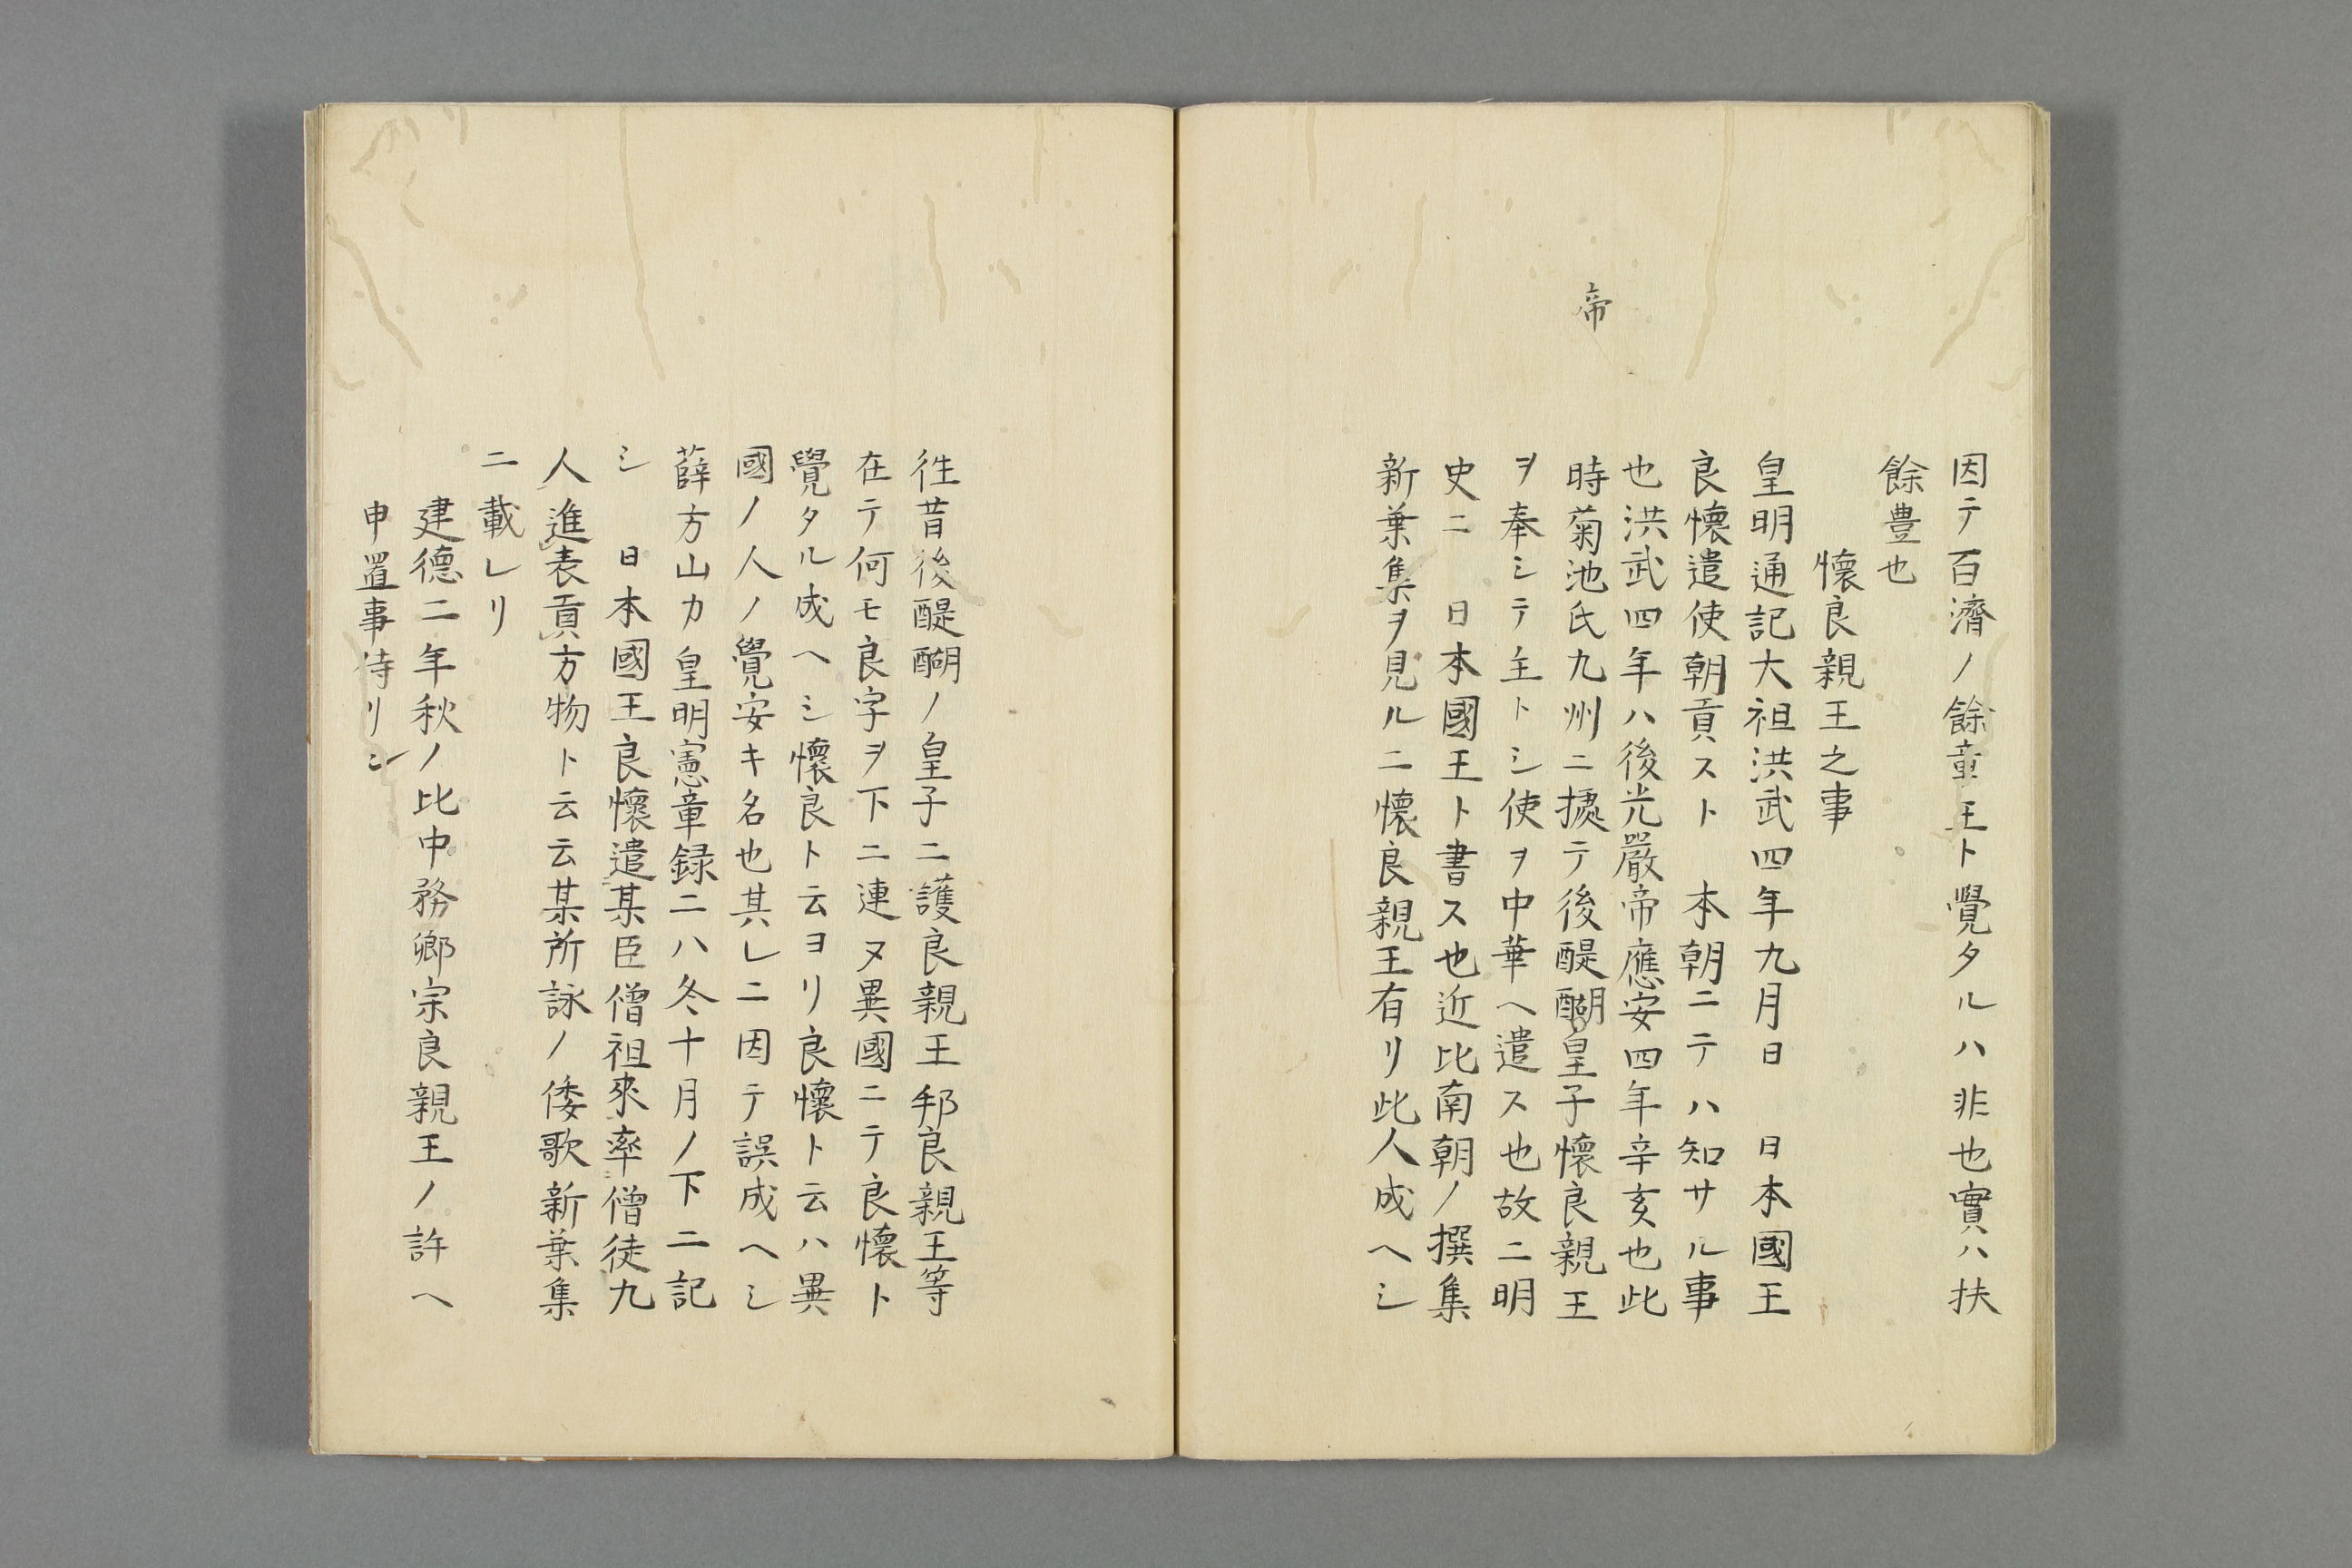 因テ百濟ノ餘童王ト覺タルハ非也實ハ扶
餘豊也
懷良親王之事
皇明通記大祖洪武四年九月日　日本國王
良懷遣使朝貢スト　本朝ニテハ知サル事
也洪武四年ハ後光嚴帝應安四年辛亥也此
帝
時菊池氏九州ニ據テ後醍醐皇子懷良親王
ヲ奉シテ主トシ使ヲ中華ヘ遣ス也故ニ明
史ニ　日本國王ト書ス也近比南朝ノ撰集
新葉集ヲ見ルニ懷良親王有リ此人成ヘシ
徃昔後醍醐ノ皇子ニ護良親王邦良親王等
在テ何モ良字ヲ下ニ連ヌ異國ニテ良懷ト
覺タル成ヘシ懷良ト云ヨリ良懷ト云ハ異
國ノ人ノ覺安キ名也其レニ因テ誤成ヘシ
薛方山カ皇明憲章録ニハ冬十月ノ下ニ記
シ　日本國王良懷遣某臣僧祖來率僧徒九
人進表貢方物ト云云某所詠ノ倭歌新葉集
ニ載レリ
建德二年秋ノ比中務卿宗良親王ノ許ヘ
申置事侍リシ